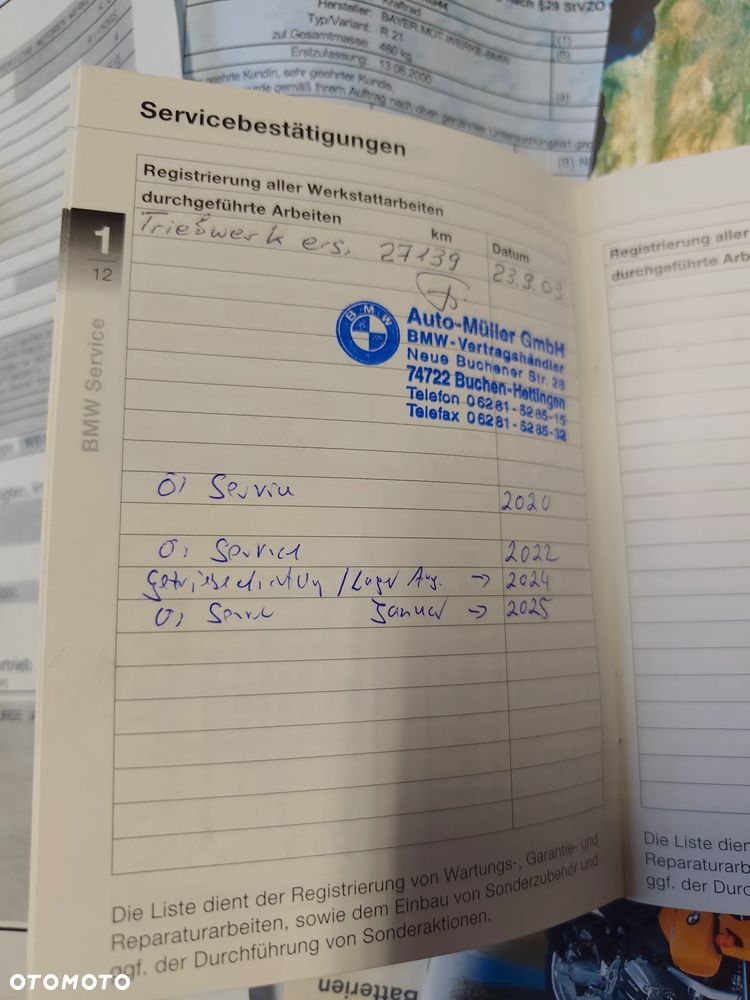 §29 StVZO
Hersteller: BAYER.MOT.WERKE-BMW
Typ/Variant: R 21
zul.Gesamtmasse: 460 kg
Erstzulassung: 13.06.2000
geehrte Kundin, sehr geehrter Kunde,
Servicebestätigungen
Registrierung aller Werkstattarbeiten
durchgeführte Arbeiten km Datum
Triebwerk ers. 27139 23.9.03
BMW
Auto-Müller GmbH
BMW-Vertragshändler
Neue Buchener Str. 28
74722 Buchen-Hettingen
Telefon 06281-5285-15
Telefax 06281-5285-32
1
12
BMW Service
Öl Service 2020
Öl Service 2022
Getriebedichtung / Lager Aug. → 2024
Öl Service Januar → 2025
Die Liste dient der Registrierung von Wartungs-, Garantie- und
Reparaturarbeiten, sowie dem Einbau von Sonderzubehör und
ggf. der Durchführung von Sonderaktionen.
Registrierung aller
durchgeführte Arb
Die Liste dien
Reparaturarb
ggf. der Durc
Batterien
OTOMOTO